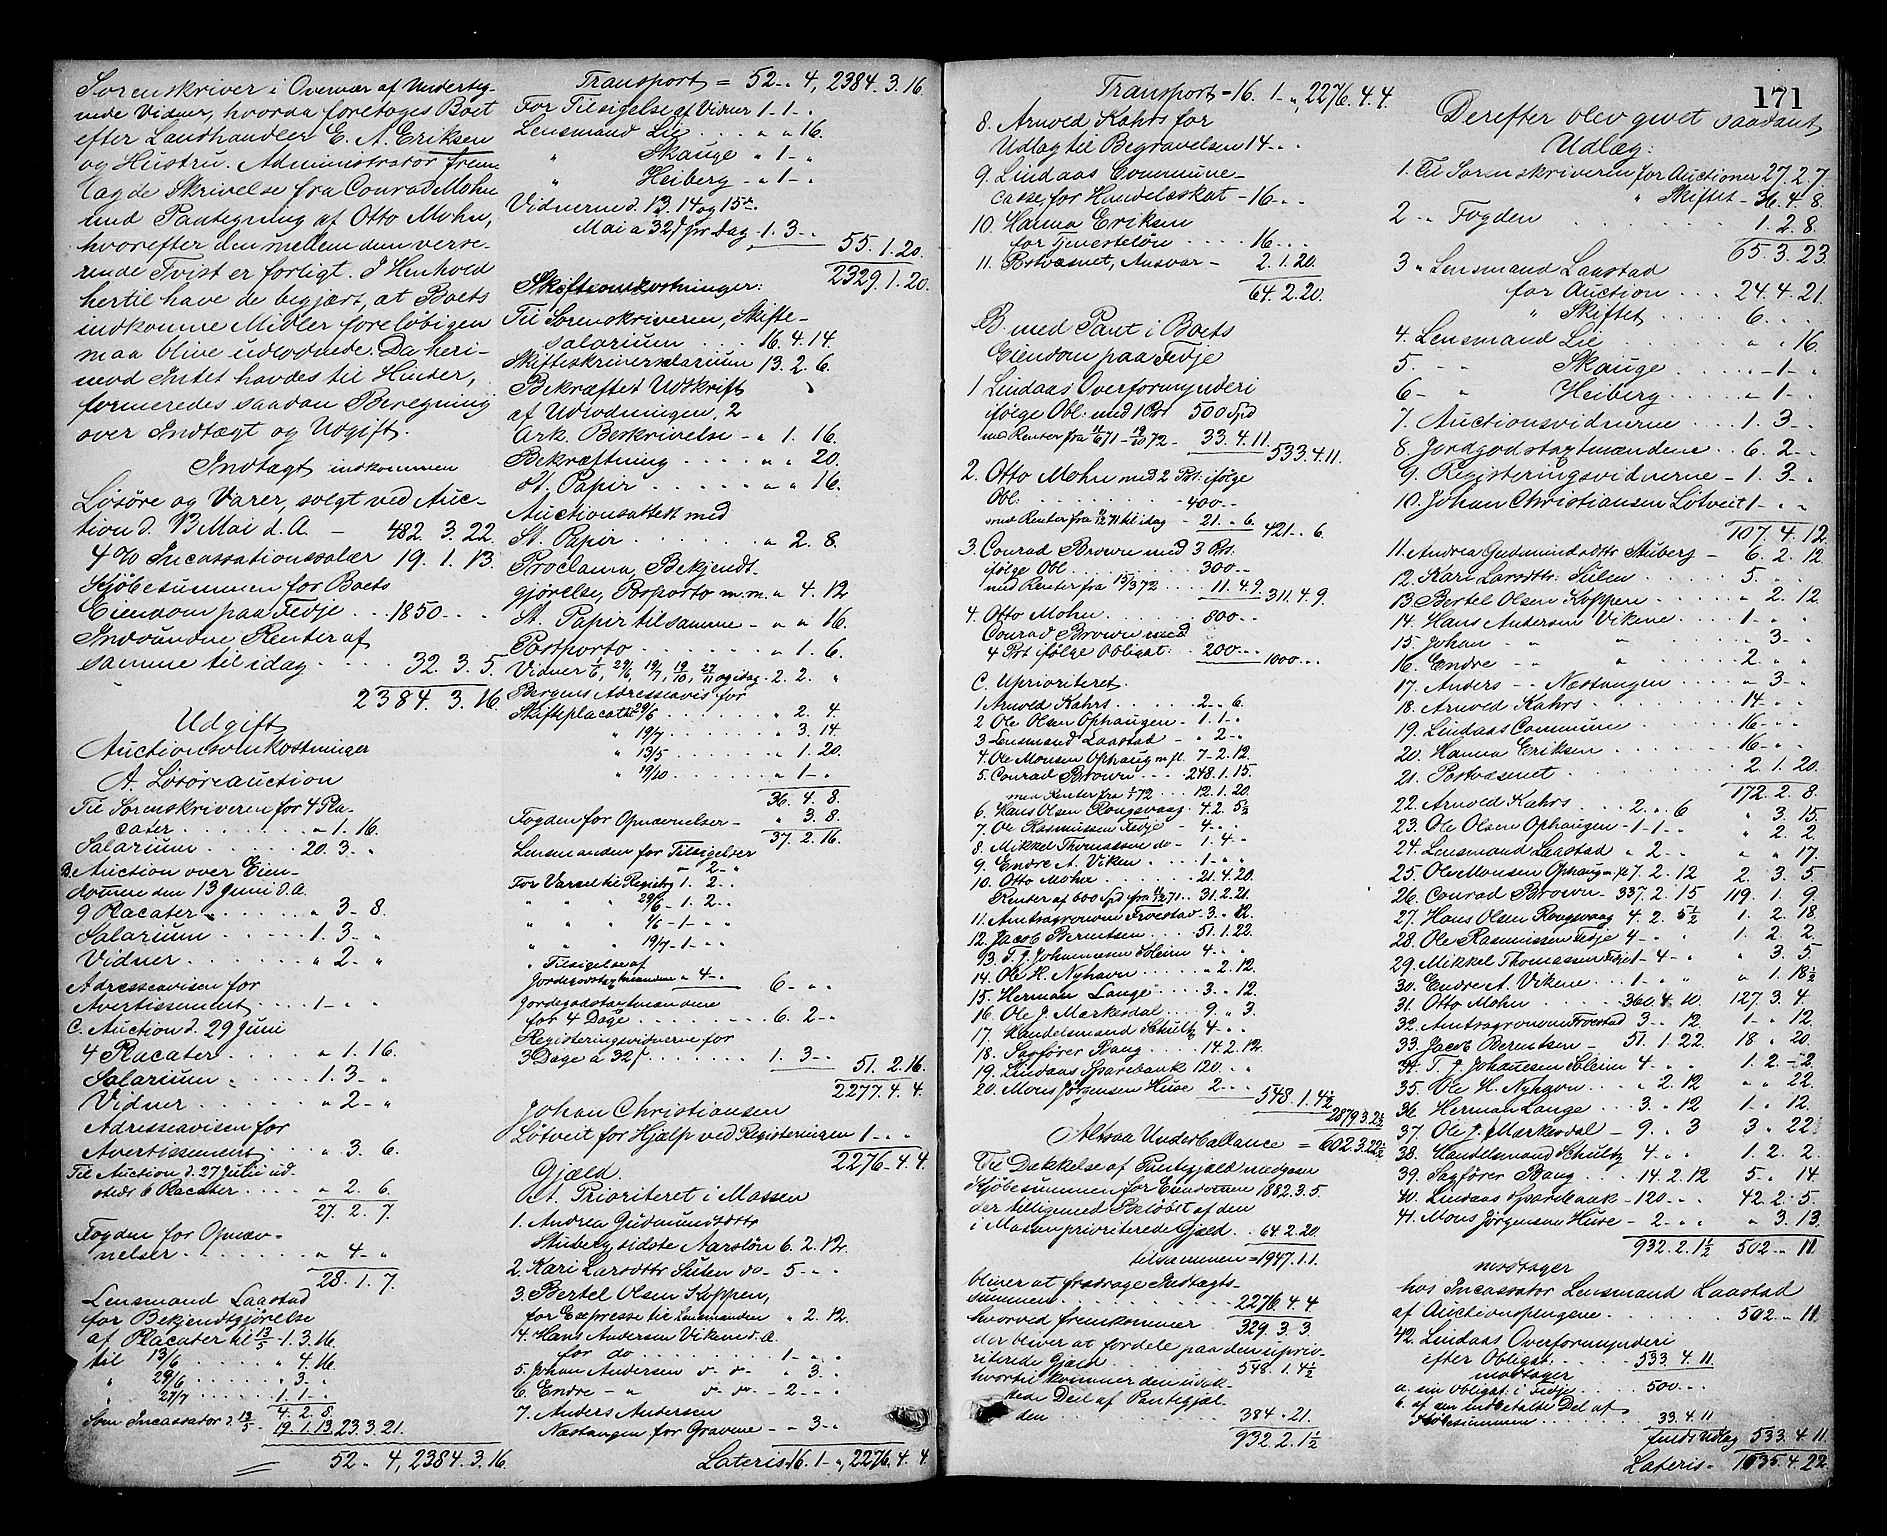 Sorenskriver i Overvær af Underteg-
nede Vidner, hvorda foretoges Boet
efter Landhandler E. A. Eriksen
og Hustru. Administrator frem-
lagde Skrivelse fra Conrad Mohn
med Paategning af Otto Mohn,
hvorefter den mellem dem verse-
rende Tvist er forligt. I Henhold
hertil have de begjært, at Boets
indkomne Midler foreløbigen
maa blive udloddede. Da heri-
mod Intet havdes til Hinder,
formeredes saadan Beregning
over Indtægt og Udgift.
Indtægt indkommen
Løsøre og Varer, solgt ved Auc-
tion d. 13 Mai d. A. — 482. 3. 22.
4 % Incassationssalær 19. 1. 13.
Kjøbesummen for Boets
Eiendom paa Fedje . . . 1850 . . .
Indvundne Renter af
samme til idag . . . . 32. 3. 5
2384. 3. 16
Udgift
Auctionsomkostninger
A. Løsøreauction
Til Sorenskriveren for 4 Pla-
cater . . . . . . . " 1. 16.
Salarium . . . . . . 20. 3 - "
B. Auction over Eien-
dommen den 13 Juni d. A.
9 Placater . . . . . " 3 - 8.
Salarium . . . . . 1. 3 - "
Vidner . . . . . . " 2 - "
Adresseavisen for
Avertissement . . . . 1 - " "
C. Auction d. 29 Juni
4 Placater . . . . . " 1. 16.
Salarium . . . . . 1. 3 - "
Vidner . . . . . . " 2 - "
Adresseavisen for
Avertissement . . . . " 3. 6.
Til Auction d. 27 Julii ud-
stedt 6 Placater . . . . " 2. 6.
27. 2. 7
Fogden for Opnæv-
nelser . . . . . . " 4 - "
28. 1. 7.
Lensmand Laastad
for Bekjendtgjørelse
af Placater til 13/5 - 1. 3. 16
til 13/6 . . . . . " 4. 16.
" 29/6 . . . . . " 3 - "
" 27/7 . . . . . 1. 1 - "
4. 2. 8.
Som Incassator d. 13/5 - 19. 1. 13. 23. 3. 21.
52 " 4, 2384. 3. 16
Transport = 52 - " 4, 2384. 3. 16.
For Tilsigelse af Vidner 1. 1 - "
Lensmand Lie . . . . " " 16.
" Skauge " 1 - "
" Heiberg - " 1 - "
Vidnerne d. 13. 14 og 15de
Mai a 32 ß pr Dag - 1. 3 - " 55. 1. 20.
2329. 1. 20.
Skifteomkostninger:
Til Sorenskriveren, Skifte-
salarium . . . 16. 4. 14.
Skifteskriversalarium 13. 2. 6.
Bekræftet Udskrift
af Udlodningen, 2
Ark. Beskrivelse - " 1. 16.
Bekræftning . . . . " " 20.
St. Papir . . . . . " " 16.
Auctionsattest med
St. Papir . . . . . . " 2. 8.
Proclama, Bekjendt-
gjørelse, Porporto m. m. " 4. 12
St. Papir til samme - " " 16.
Postporto . . . . . . . " 1. 6.
og idag - 2. 2. "
Bergens Adresseavis for
Skifteplacater 29/6 . . . . . . " 2. 4
" 19/7 . . . . . . " 3. 14
" 13/5 . . . . . . " 1. 20.
" 19/10 . . . . . . " 1 - "
36. 4. 8.
Fogden for Opnævnelser - " 3. 8.
37. 2. 16.
Lensmanden for Tilsigelser
" 2 - "
For Varsel til Registrg 1. 2 - "
" " " 29/6 - 1. 2 - "
" " " 1/6 - 1 - " "
" " " 19/7 - 1 - " "
" Tilsigelse af
Jordegodstaxtmændene " 4 - " 6 - " "
Jordegodstaxtmændene
for 4 Dage . . . . . . 6. 2 - "
Registeringsvidnerne for
3 Dage a 32 ß . . . . . 1. 3 - " 51. 2. 16.
2277. 4. 4.
Johan Christiansen
Løtveit for Hjælp ved Registeringen 1 - " "
2276. 4. 4.
Gjæld.
A. Prioriteret i Massen
1. Andrea Gudmundsdttr
Stuberg, sidste Aarsløn 6. 2. 12.
2. Kari Larsdttr Silen do - 5 - " "
3. Bertel Olsen Koppen,
for Expresse til Lensmanden " 2. 12.
4. Hans Andersen Viken d. A.
for do . . . . . . . . . 1 - " "
5. Johan Andersen do do - " 3 - "
6. Endre - " do do - 2 - " "
7. Anders Andersen
Næstangen for Gravene - " 3 - "
Lateris 16. 1 - ", 2276. 4. 4
171
Transport - 16. 1 - ", 2276. 4. 4.
8. Arnold Kahrs for
Udlæg til Begravelsen 14 - "
9. Lindaas Commune-
casse, for Handelsskat - 16 - "
10. Hanna Eriksen
for Tjenesteløn . . . . 16 - "
11. Postvæsnet, Ansvar - 2. 1. 20.
64. 2. 20.
B. med Pant i Boets
Eiendom paa Fedje
1 Lindaas Overformynderi
ifølge Obl. med 1 Pr. 500 Spd
med Renter fra 11/6 71 - 19/10 72 - 33. 4. 11. 533. 4. 11.
2. Otto Mohn med 2 Pr. ifølge
Obl. . . . . . . . . 400 - "
med Renter fra 11/12 71 til idag - 21 - " 6. 421 - " 6.
3. Conrad Brown med 3 Pr.
ifølge Obl . . . . . . 300 - "
med Renter fra 15/3 72 . . . 11. 4. 9. 311. 4. 9.
4. Otto Mohn . . . . . . 800 - "
Conrad Brown med
4 Pr. ifølge Obligat: . . 200 - " 1000 - "
C. Uprioriteret.
1 Arnold Kahrs . . . . . 2 - " 6.
2 Ole Olsen Ophaugen - 1. 1 - "
3 Lensmand Laastad - " 2 - "
4. Ole Monsen Ophaug m. fl. 7 - 2. 12.
5. Conrad Brown . . . 248. 1. 15.
med Renter fra 1/1 72 . . 12. 1. 20.
6. Hans Olsen Rongsvaag 4. 2. 5½
7. Ole Rasmussen Fedje - 4 - " "
8. Mikkel Thomassen do - 1. 4 - "
9. Endre A. Viken . . . . 1 - " "
10. Otto Mohn . . . . . . 21. 4. 20.
Renter af 600 Spd fra 11/12 71 . 31. 2. 21.
11. Amtsagronom Froestad - 3 - " 12.
12. Jacob Berentsen . . . . 51. 1. 22.
13. T. J. Johannesen Soleim 4 - " "
14. Ole H. Nyhavn . . . . . " 2. 12.
15. Herman Lange . . . . . 3 - " 12.
16. Ole J. Merkesdal . . . . 9. " 3.
17. Handelsmand Schultz 4 - " "
18. Sagfører Bang . . . . 14. 2. 12.
19. Lindaas Sparebank 120. " "
20. Mons Jørgensen Huse 2 - " " 548. 1. 4½
2879. 3. 2½
Altsaa Underballance = 602. 3. 22½
Til Dækkelse af Pantegjæld medgaaer
Kjøbesummen for Eiendommen 1882. 3. 5.
der tilligemed Beløbet af den
i Massen prioriterede Gjæld . 64. 2. 20.
tilsammen = 1947. 1. 1.
bliver at fradrage Indtægts-
summen . . . . . . . . 2276. 4. 4
hvorved fremkommer . . . . 329. 3. 3.
der bliver at fordele paa den uprio-
riterede Gjæld . . . . . . 548. 1. 4½
hvortil kommer den udæk-
kede Deel af Pantegjæl-
den . . . . . . . . . 384 - " 21.
932. 2. 1½
Derefter blev givet saadant
Udlæg:
1. Til Sorenskriveren for Auctioner 27. 2. 7
" Skiftet - 36. 4. 8
2 " Fogden . . . . . . . 1. 2. 8.
65. 3. 23
3 " Lensmand Laastad
for Auction . . . 24. 4. 21.
" Skiftet . . . . . 6. . . .
4. Lensmand Lie . . . . . . . " " 16.
5. - " Skauge . . . . " 1 - "
6 - " Heiberg . . . . " 1 - "
7. Auctionsvidnerne . . . . 1. 3 - "
8. Jordgodstaxtmændene . . 6. 2 - "
9. Registeringsvidnerne - 1. 3 - "
10. Johan Christiansen Løtveit 1 - " "
107. 4. 12.
11. Andrea Gudmundsdttr Stuberg - 6. 2. 12
12. Kari Larsdttr: Silen . . . . 5. " "
13. Bertel Olsen Koppen . . . . . " 2. 12.
14. Hans Andersen Vikene . . . 1 - " "
15. Johan - " " . . . . " 3 - "
16. Endre - " " . . . . 2 - " "
17. Anders - " Næstangen . . . " 3 - "
18. Arnold Kahrs . . . . . . 14 - " "
19. Lindaas Commune . . . . 16 - " "
20. Hanna Eriksen . . . . . 16 - " "
21. Postvæsnet . . . . . . . 2. 1. 20.
172. 2. 8.
22. Arnold Kahrs . . . 2. " 6 " 3. 15.
23. Ole Olsen Ophaugen - 1 - 1 - " " 2. 2.
24. Lensmand Laastad " 2 - " " " 17.
25. Ole Monsen Ophaug m. fl 7. 2. 12 2. 3. 5
26. Conrad Brown - 337. 2. 15 119. 1. 9
27. Hans Olsen Rongsvaag 4. 2. 5½ 1. 2. 18.
28. Ole Rasmussen Fedje 4 - " " 1. 2. 2.
29. Mikkel Thomassen Fedje 1 - 4 - " " 3. 5.
30. Endre A. Vikene . . 1 - " " " 1. 18½
31. Otto Mohn . . . . . 360. 4. 10. 127. 3. 4.
32. Amtsagronom Froestad 3 - " 12 1 - " 12.
33. Jacob Berentsen - 51. 1. 22 18 " 20.
34. T. J. Johannesen Soleim 4 - " " 1. 2 - 2.
35. Ole H. Nyhavn . . . " 2. 12 " " 22.
36. Herman Lange . . . 3. " 12 1 - " 12.
37. Ole J. Merkesdal - 9. " 3 3 " 22.
38. Handelsmand Schultz 4. " " 1. 2. 2.
39. Sagfører Bang . . . 14. 2. 12 5 - " 14
40. Lindaas Sparebank - 120. " " 42. 2. 5.
41. Mons Jørgensen Huse - 2 - " " " 3. 13.
932. 2. 1½ 502 - " 11
modtager
hos Incassator Lensmand Laastad
af Auctionspengene . . . . . . . 502 - " 11.
42. Lindaas Overformynderi
efter Obligat . . . . . 533. 4. 11
modtager
a. sin Obligat. i Fedje . . . . 500 . . .
b. af den indbetalte Del af
Kjøbesummen . . . . . . 33. 4. 11
fuldt Udlæg 533. 4. 11
Lateris - 1035. 4. 22